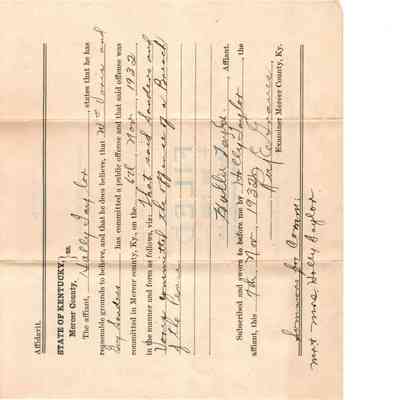 Affidavit.
STATE OF KENTUCKY,
Mercer County, } ss.
The affiant, Holly Taylor states that he has
reasonable grounds to believe, and that he does believe, that and
Roy Sanders has committed a public offense and that said offense was
committed in Mercer county, Ky., on the 6th Nov 1932
in the manner and form as follows, viz: That said Sanders and
committed the offense of a Breach
of the Peace
Hollie Taylor, Affiant.
Subscribed and sworn to before me by Holly Taylor, the
affiant, this 7th Nov 1932
Examiner Mercer County, Ky.
Summons for Comm:
Mr & Mrs. Holly Taylor